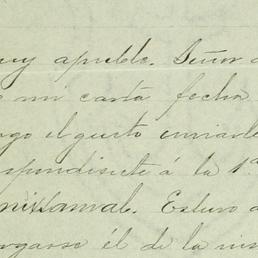 uy apreble. Señor
mi carta fecha
go el gusto enviarle
spondiente á la 1ª
Estuvo
rgarse él de la